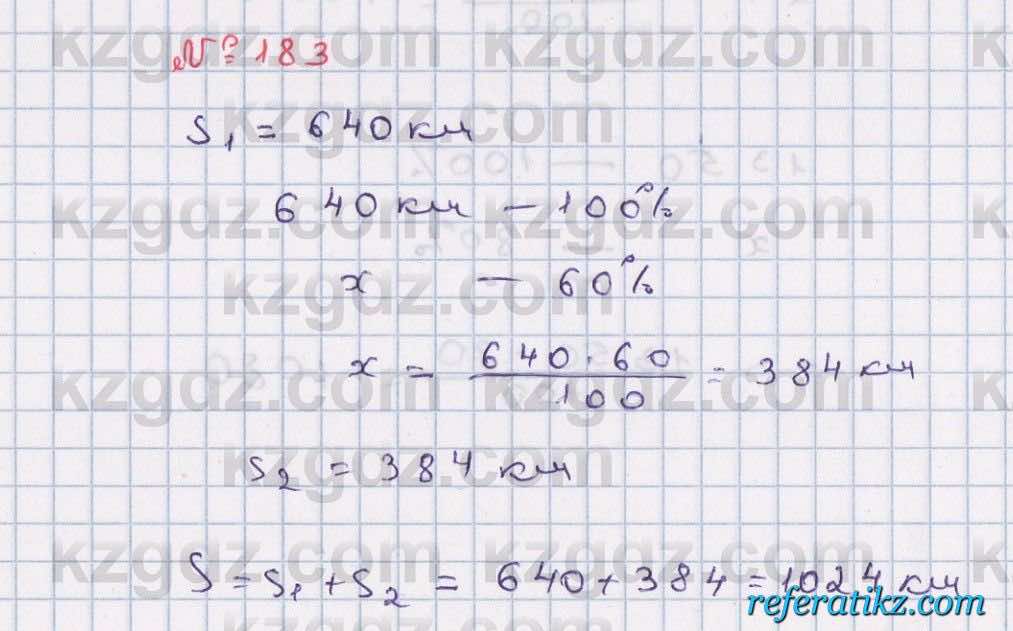 № 183
S₁ = 640 км
640 км — 100%
x — 60%
x = 640 · 60 / 100 = 384 км
S₂ = 384 км
S = S₁ + S₂ = 640 + 384 = 1024 км
kzgdz.com
referatikz.com